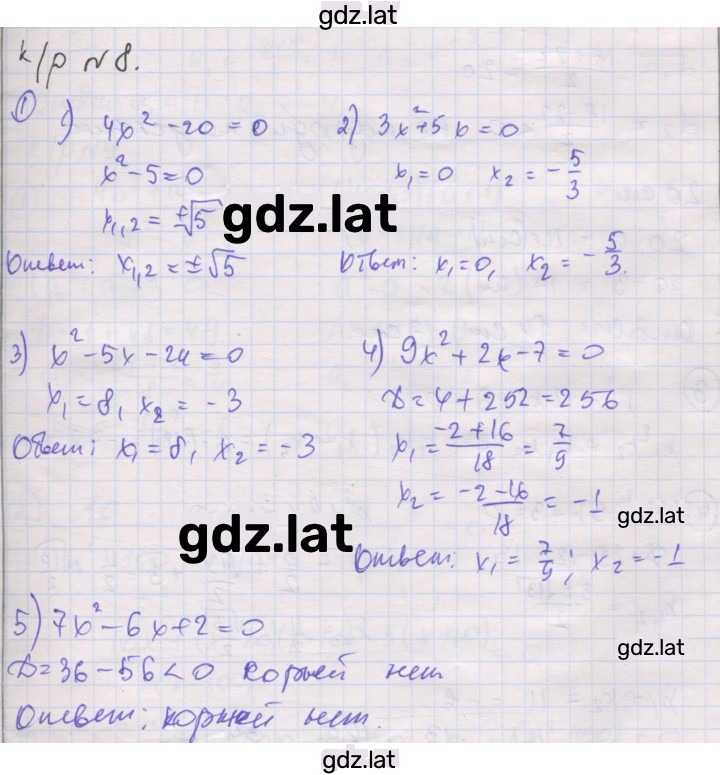 gdz.lat
к/р №8.
① 1) 4x² - 20 = 0
x² - 5 = 0
x₁,₂ = ±√5
Ответ: x₁,₂ = ±√5
2) 3x² + 5x = 0
x₁ = 0 x₂ = -5/3
Ответ: x₁ = 0, x₂ = -5/3.
gdz.lat
3) x² - 5x - 24 = 0
x₁ = 8, x₂ = -3
Ответ: x₁ = 8, x₂ = -3
4) 9x² + 2x - 7 = 0
D = 4 + 252 = 256
x₁ = (-2+16)/18 = 7/9
x₂ = (-2-16)/18 = -1
Ответ: x₁ = 7/9; x₂ = -1
gdz.lat
gdz.lat
5) 7x² - 6x + 2 = 0
D = 36 - 56 < 0 корней нет
Ответ: корней нет.
gdz.lat
gdz.lat